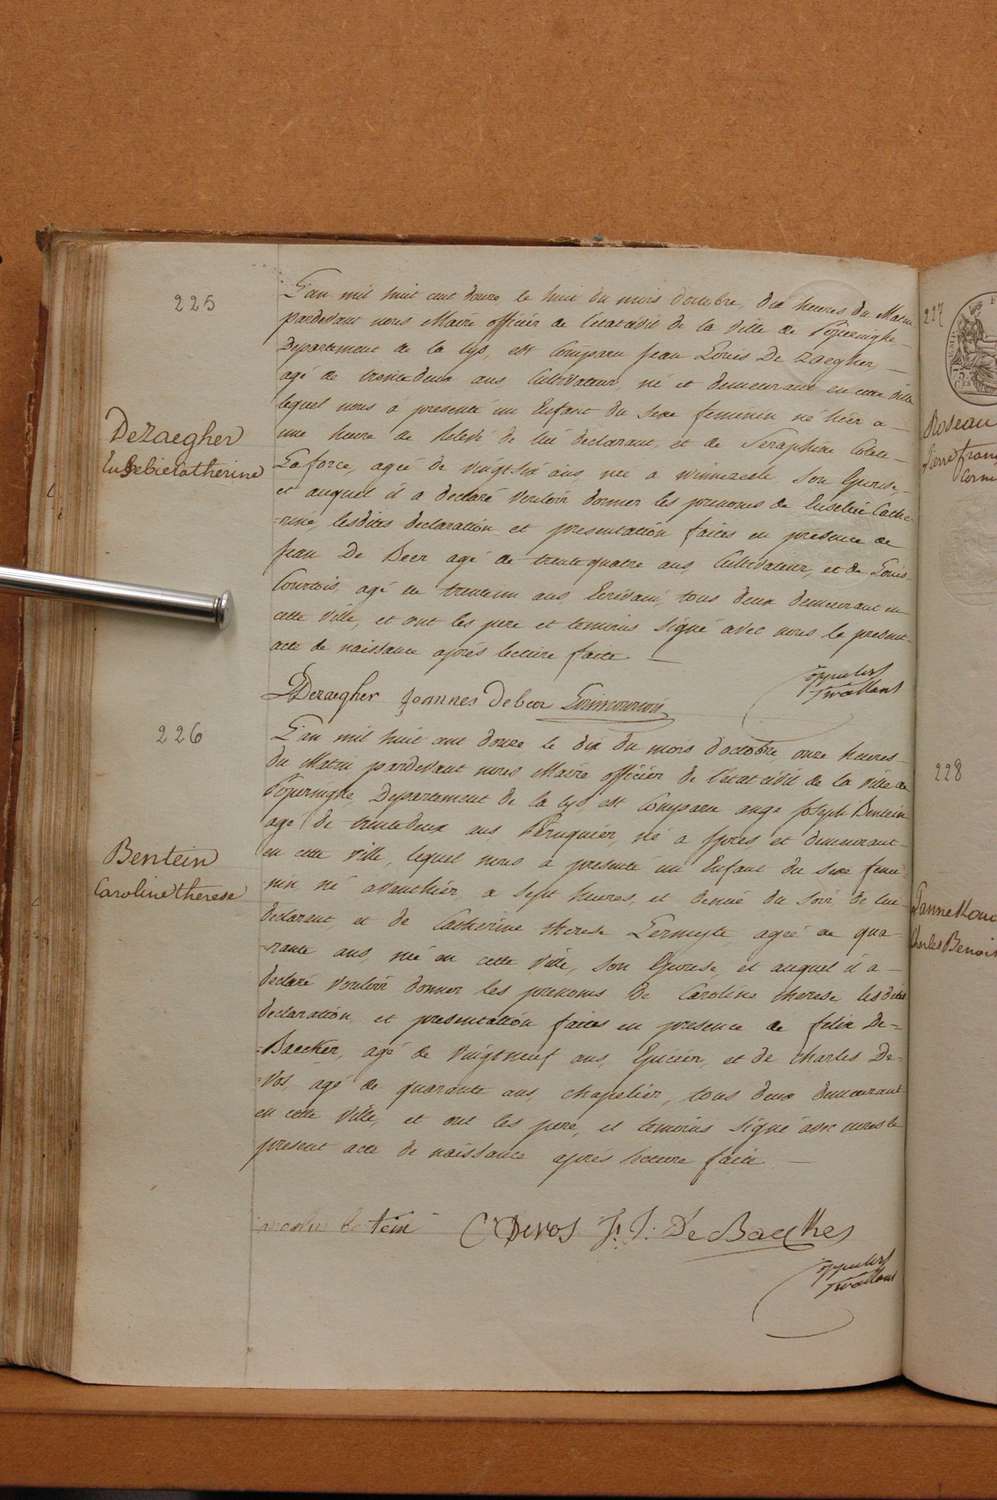 225
DeZaegher
Eusebie Catherine
L'an mil huit cent douze, le huit du mois d'octobre, dix heures du Matin
pardevant nous Maire officier de l'etat civil de la Ville de Poperinghe
Departement de la Lys, est Comparu Jean Louis De Zaegher
agé de trente deux ans Cultivateur, né et demeurant en cette ville
lequel nous a presenté un Enfant du Sexe feminin né hier a
une heure de de lui declarant, et de Seraphine
Laforce, agée de vingt six ans, née a Winnezeele son Epouse,
et auquel il a declaré vouloir donner les prenoms de Eusebie Cathe
-rine, lesdites declaration et presentation faites en presence de
Jean De Beer agé de trente quatre ans Cultivateur, et de Louis
Courtois, agé de trente un ans Ecrivain, tous deux demeurant en
cette Ville, et ont les pere et temoins Signé avec nous le present
acte de naissance après lecture faite
LDezaegher Joannes debeer
226
Bentein
Caroline therese
L'an mil huit cent douze le dix du mois d'octobre, onze heures
du Matin pardevant nous Maire officier de l'etat civil de la Ville de
Poperinghe Departement de la Lys est Comparu ange Joseph Bentein
agé de trente deux ans Peruquier, né a Ypres et demeurant
en cette Ville, lequel nous a presenté un Enfant du Sexe femi-
nin né avanthier, a Sept heures, et demie du Soir, de lui
declarant, et de Catherine therese agée de qua-
-rante ans, née en cette Ville, son Epouse, et auquel il a
declaré vouloir donner les prenoms de Caroline therese lesdites
declaration et presentation faites en presence de felix De-
-Baecker, agé de vingt neuf ans, Epicier, et de Charles De-
-Vos, agé de quarante ans, chapelier, tous deux demeurant
en cette Ville, et ont les pere, et temoins Signé avec nous le
present acte de naissance après lecture faite
bentein C Devos F: J: De Backker
227
Roseau
Pierre franç
Corne
228
Charles Benoit